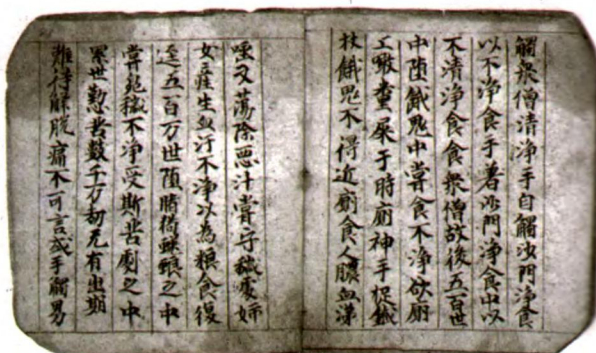 觸衆僧清淨手自觸沙門淨食
以不淨食手著沙門淨食中以
不清淨食食衆僧故後五百世
中墮餓鬼中甞食不淨欲廁
上噉糞屎于時廁神手捉鐵
杖餓鬼不得近廁食人膿血涕
唾又蕩除惡汁甞守穢處婦
女産生血汙不淨以為粮食復
逕五百万世墮猪蜣蜋之中
甞飽穢不淨受斯苦劇之中
累世懃苦數千万劫无有出期
難得解脫痛不可言或手觸男